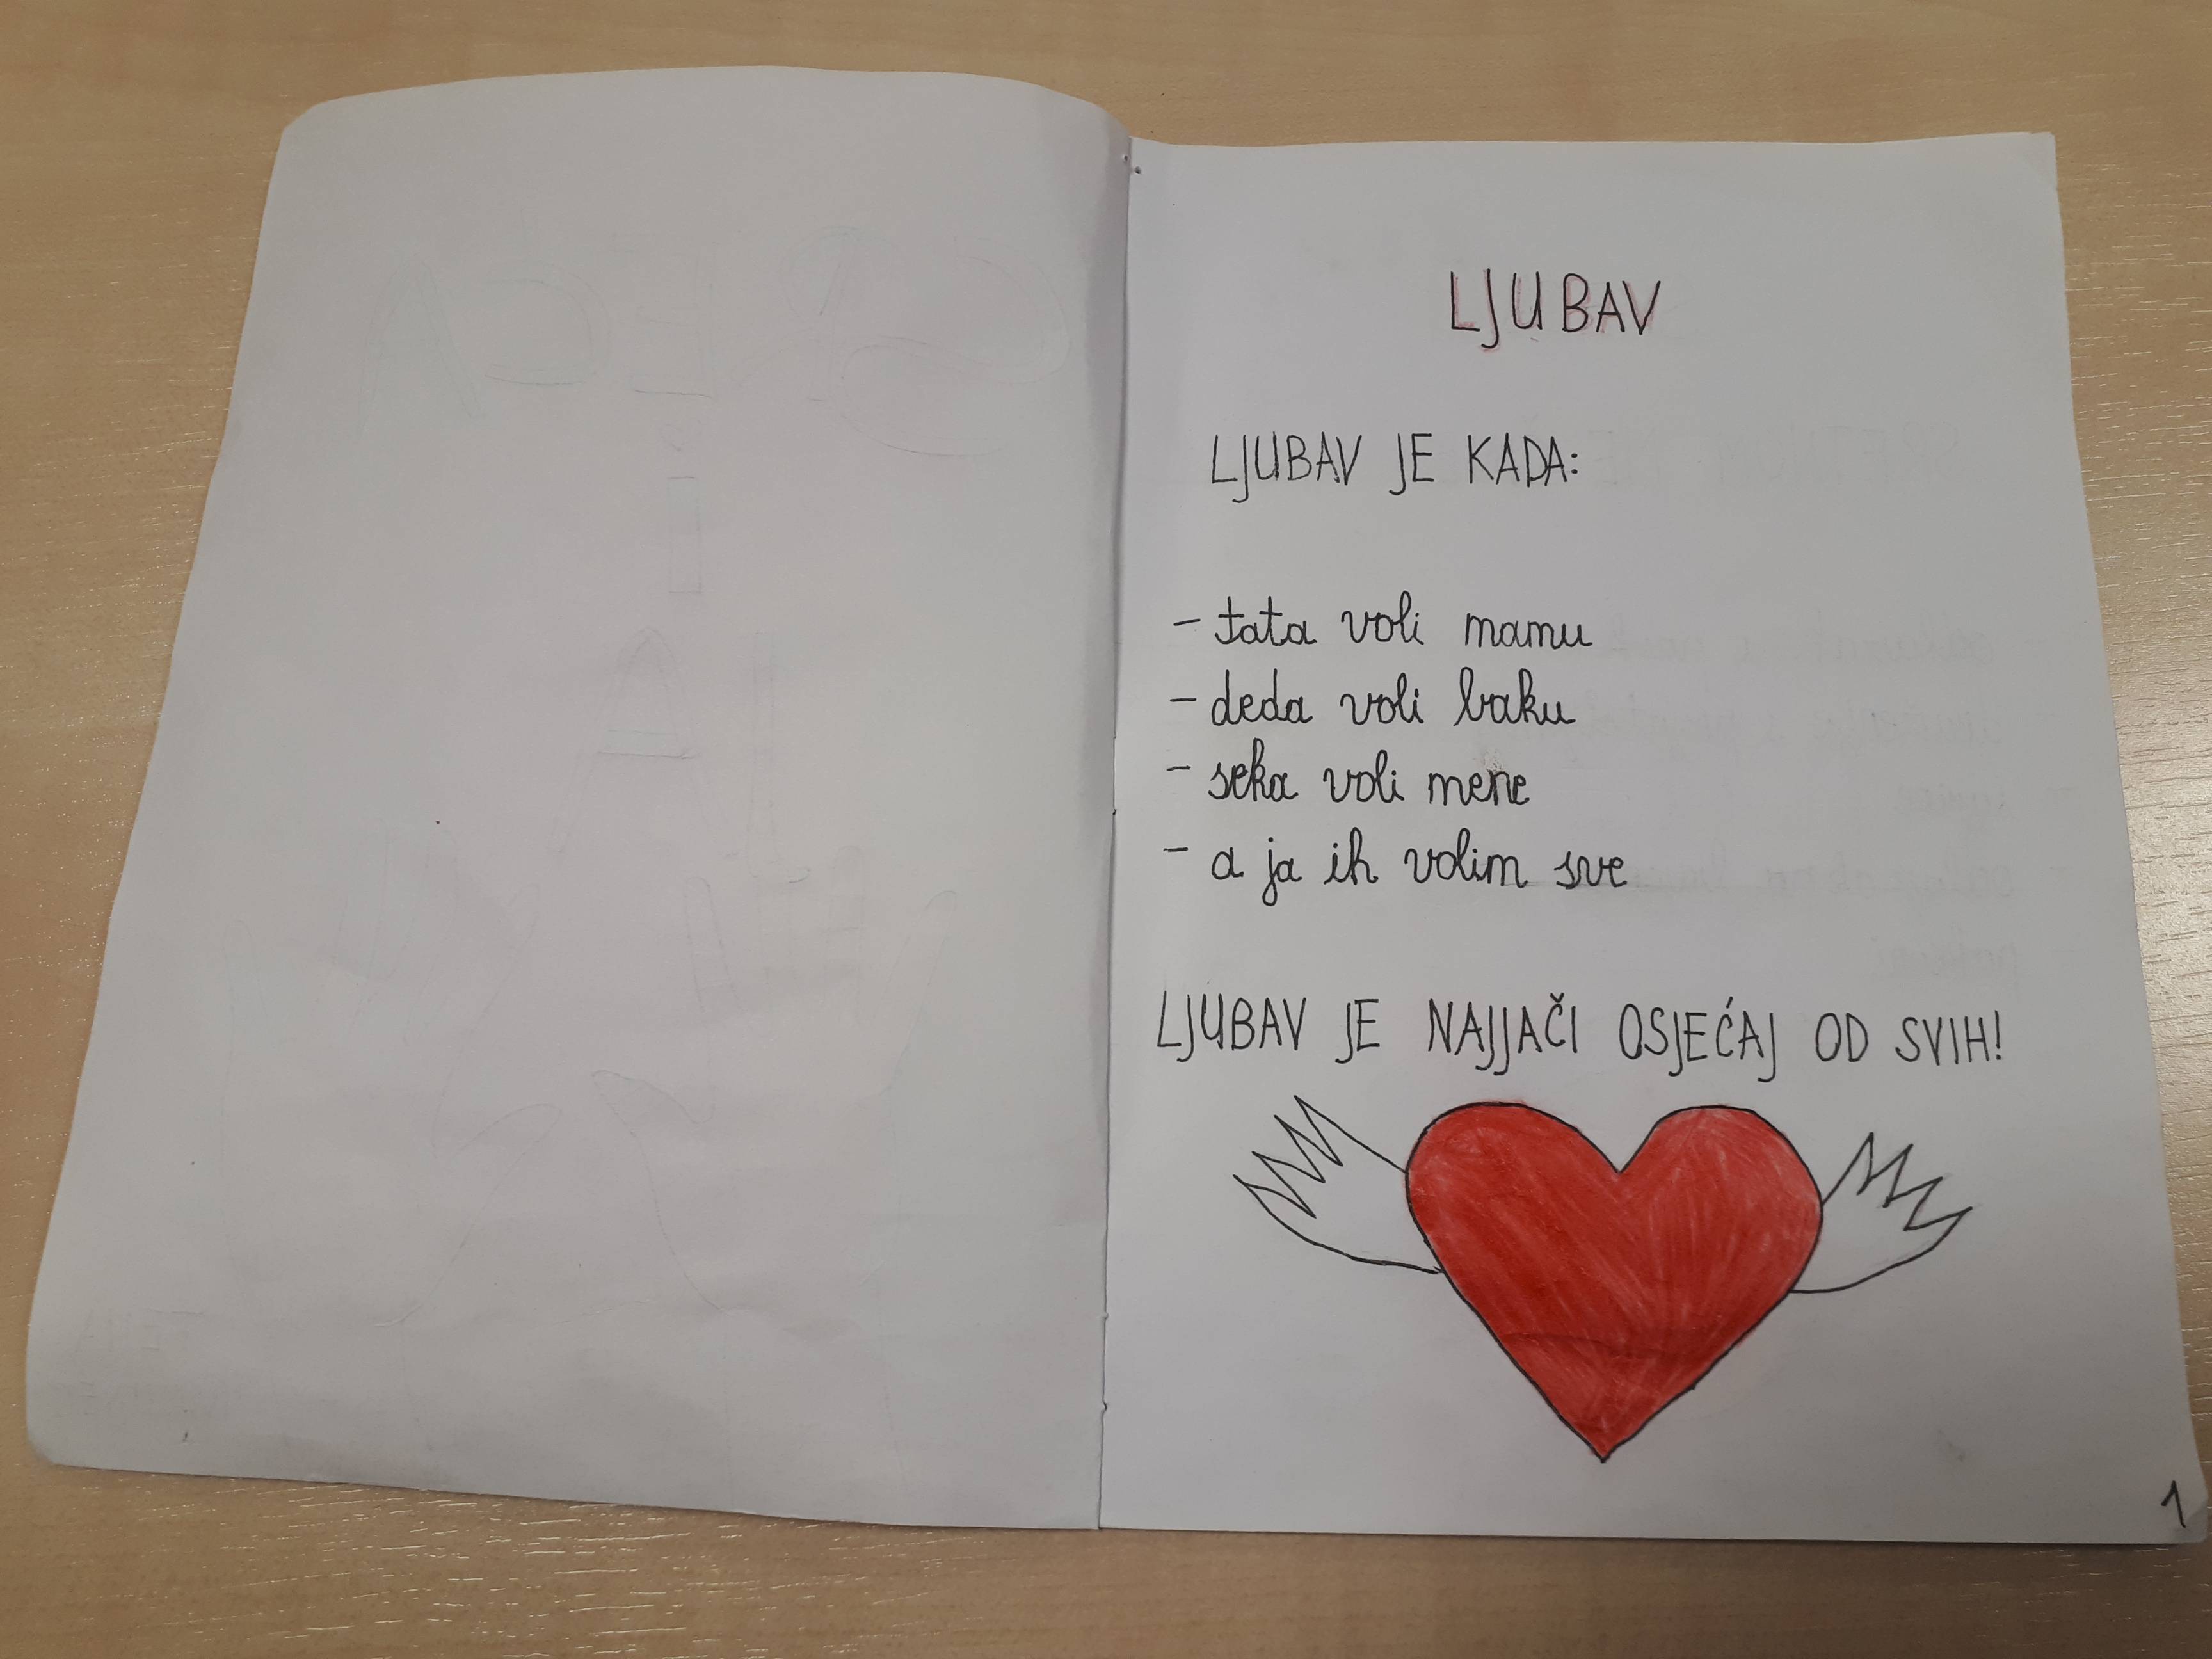 LJUBAV
LJUBAV JE KADA:
- tata voli mamu
- deda voli baku
- seka voli mene
- a ja ih volim sve
LJUBAV JE NAJJAČI OSJEĆAJ OD SVIH!
1